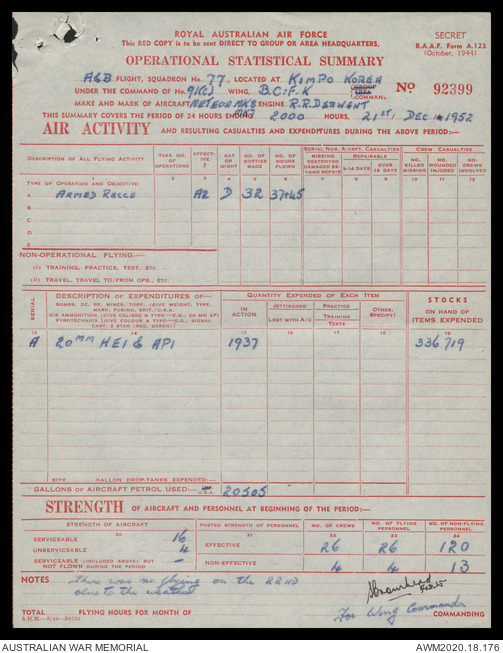 ROYAL AUSTRALIAN AIR FORCE
This RED COPY is to be sent DIRECT TO GROUP OR AREA HEADQUARTERS.
SECRET
R.A.A.F. Form A.125
(October, 1944)
OPERATIONAL STATISTICAL SUMMARY
A&B FLIGHT, SQUADRON No. 77, LOCATED AT KIMPO KOREA
UNDER THE COMMAND OF No. 91(C) WING, B.C.F.K GROUP AREA COMMAND.
No 92399
MAKE AND MARK OF AIRCRAFT METEOR MK8 MK7 ENGINE R.R. DERWENT
THIS SUMMARY COVERS THE PERIOD OF 24 HOURS ENDING 2000 HOURS, 21st DEC 1952
AIR ACTIVITY AND RESULTING CASUALTIES AND EXPENDITURES DURING THE ABOVE PERIOD:—
DESCRIPTION OF ALL FLYING ACTIVITY
TASK NO. OF OPERATIONS
EFFECTIVE ?
DAY OR NIGHT
NO. OF SORTIES MADE
NO. OF HOURS FLOWN
SERIAL NOS. A'CRFT. CASUALTIES
MISSING DESTROYED DAMAGED BEYOND REPAIR
REPAIRABLE
2-14 DAYS
OVER 14 DAYS
CREW CASUALTIES
NO. KILLED MISSING
NO. WOUNDED INJURED
NO. CREWS INVOLVED
2 3 4 5 6 7 8 9 10 11 12
TYPE OF OPERATION AND OBJECTIVE:
A ARMED RECCE A2 D 32 37+45
B
C
D
E
NON-OPERATIONAL FLYING:—
(i) TRAINING, PRACTICE, TEST, ETC.
(ii) TRAVEL, TRAVEL TO/FROM OPS., ETC.
SERIAL
DESCRIPTION OF EXPENDITURES OF—
BOMBS, DC, RP, MINES, TORP. (GIVE WEIGHT, TYPE, MARK, FUSING, BRIT./U.S.A.
AIR AMMUNITION (GIVE CALIBRE & TYPE—E.G., 20 MM API
PYROTECHNICS (GIVE COLOUR & TYPE—E.G., SIGNAL CART. 2 STAR (RED, GREEN))
QUANTITY EXPENDED OF EACH ITEM
IN ACTION
JETTISONED
LOST WITH A/C
PRACTICE
TRAINING
TESTS
OTHER: (SPECIFY)
STOCKS
ON HAND OF ITEMS EXPENDED
13 14 15 16 17 18 19
A 20MM HEI & API 1937 336719
SIZE GALLON DROP-TANKS EXPENDED:—
GALLONS OF AIRCRAFT PETROL USED:— U.S.A. 20505
STRENGTH OF AIRCRAFT AND PERSONNEL AT BEGINNING OF THE PERIOD:—
STRENGTH OF AIRCRAFT
POSTED STRENGTH OF PERSONNEL
NO. OF CREWS
NO. OF FLYING PERSONNEL
NO. OF NON-FLYING PERSONNEL
20 21 22 23 24
SERVICEABLE 16
UNSERVICEABLE 4
SERVICEABLE (INCLUDED ABOVE) BUT NOT FLOWN DURING THE PERIOD —
EFFECTIVE 26 26 120
NON-EFFECTIVE 4 4 13
NOTES There was no flying on the 22ND
due to the weather
TOTAL FLYING HOURS FOR MONTH OF
For Wing Commander COMMANDING.
AUSTRALIAN WAR MEMORIAL
AWM2020.18.176